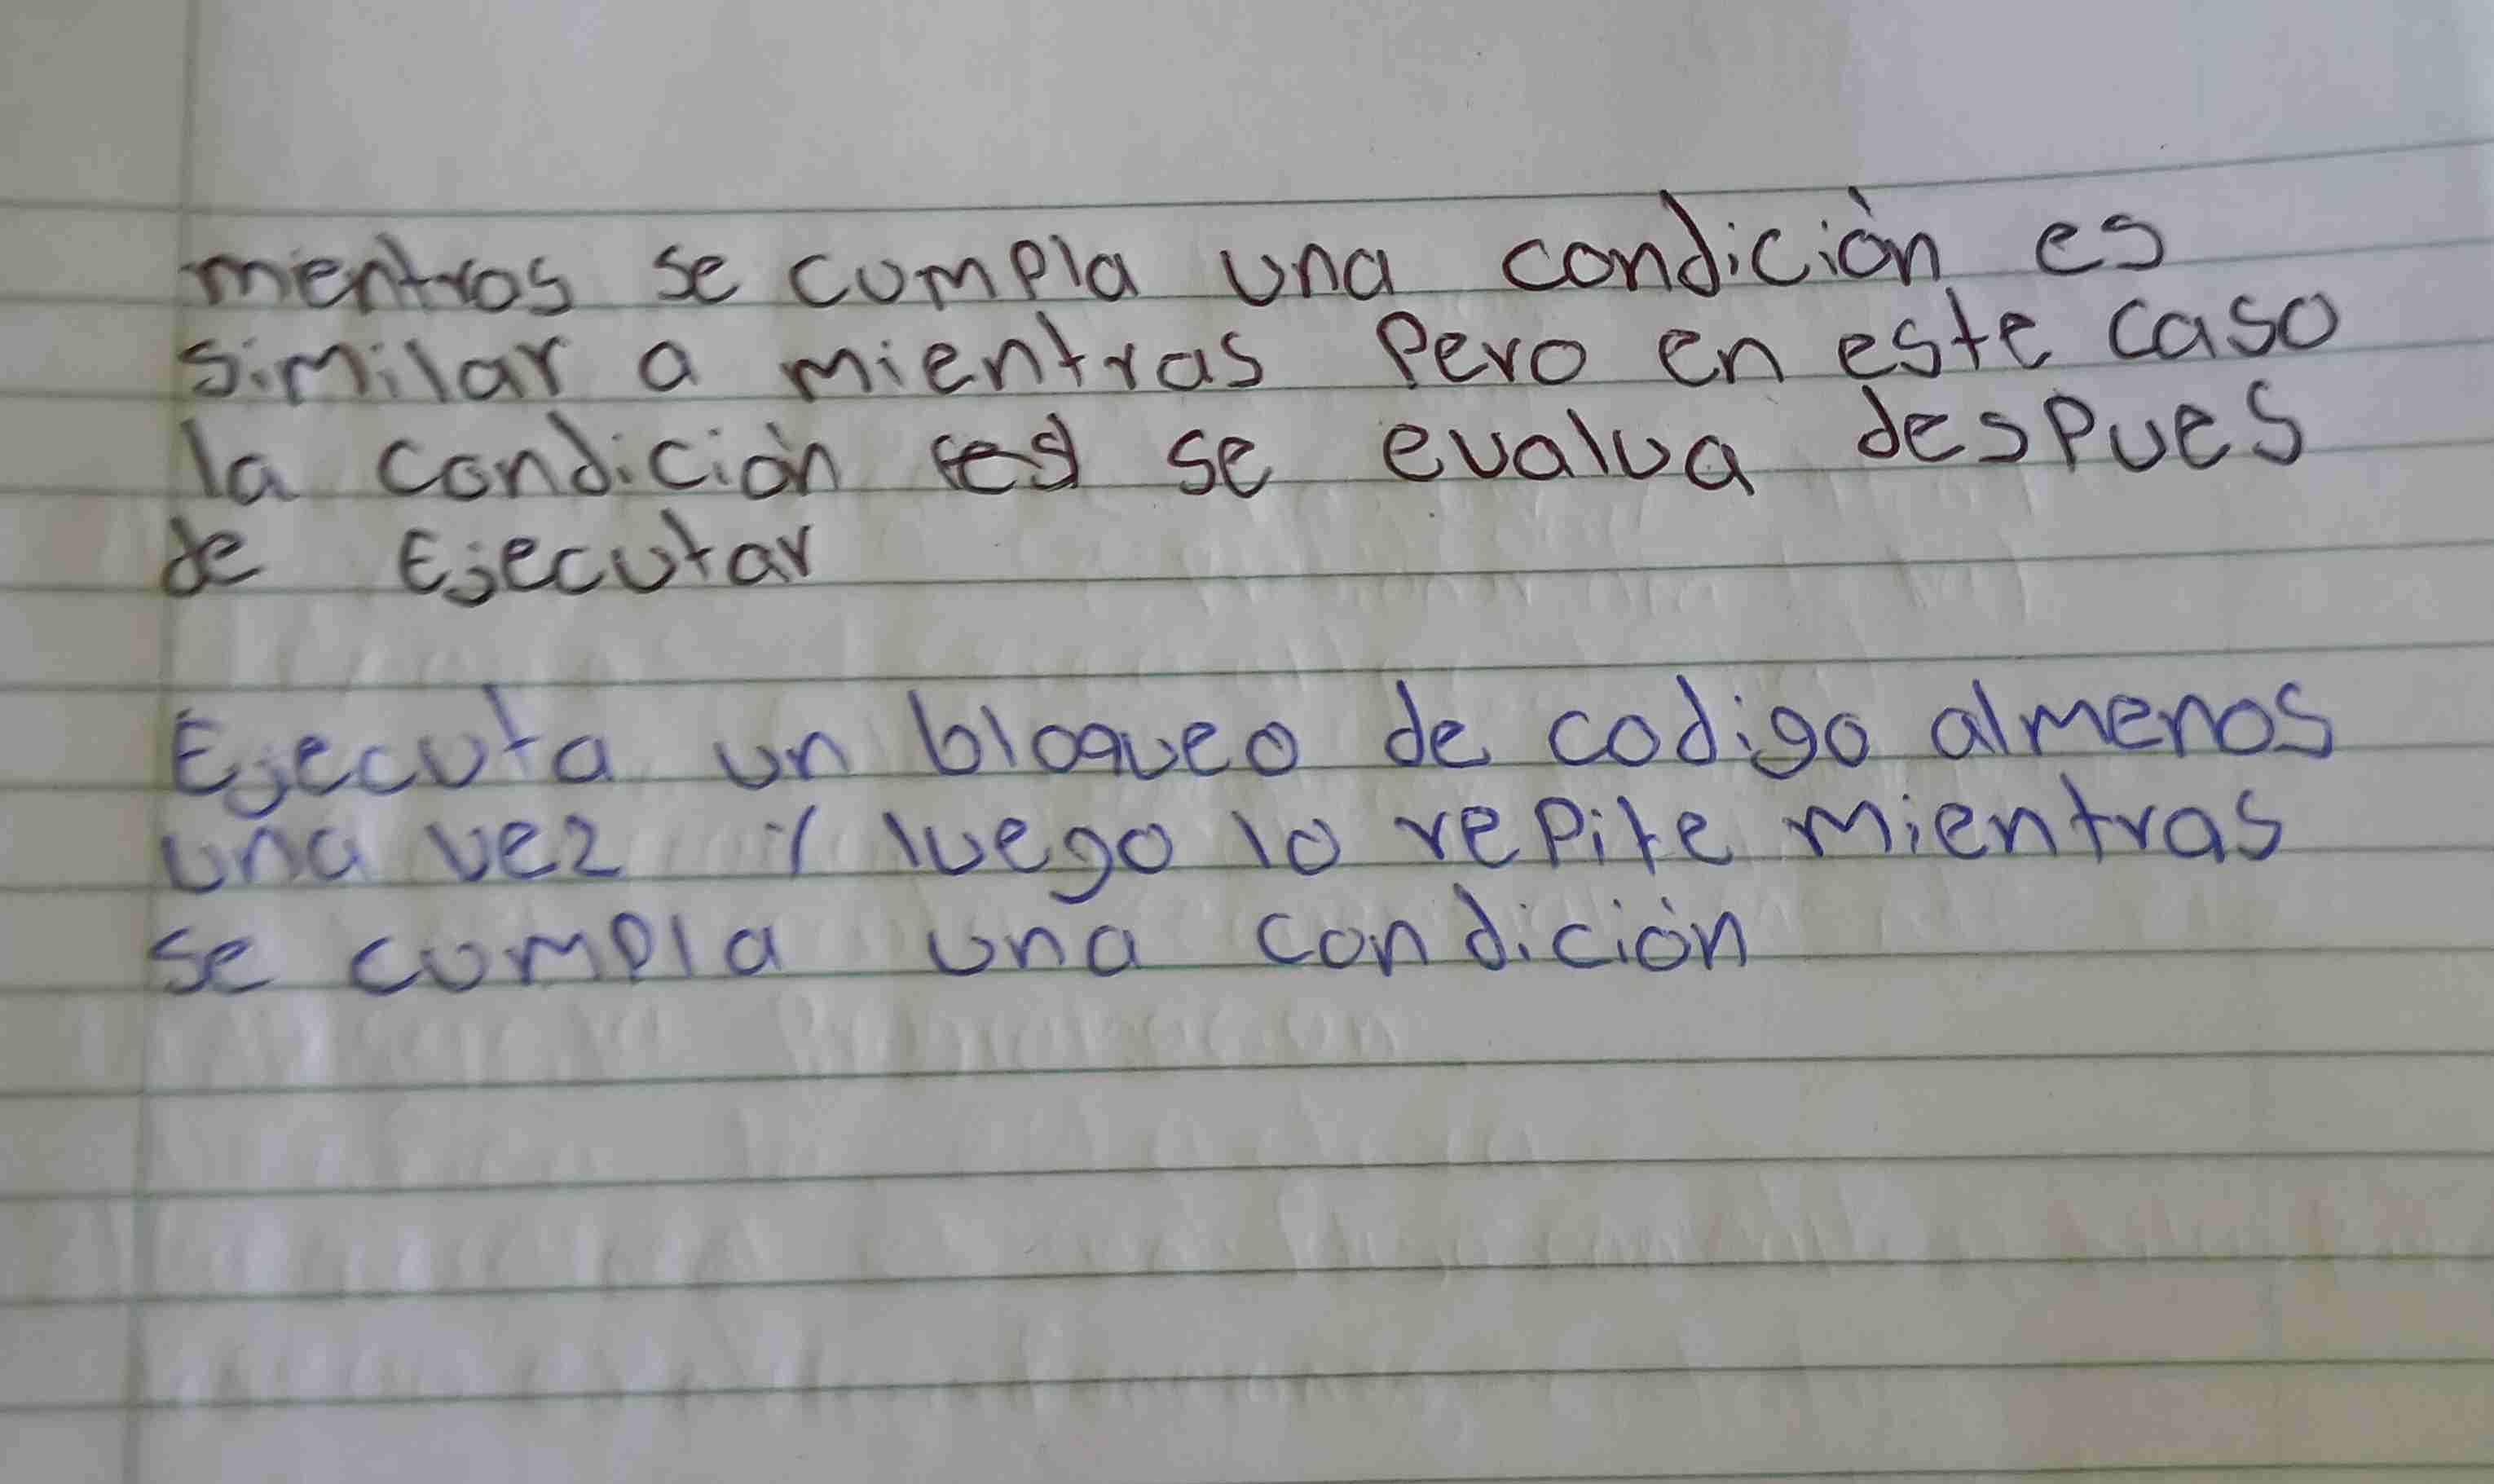 mientras se cumpla una condición es
similar a mientras Pero en este caso
la condición se evalua despues
de Ejecutar
Ejecuta un bloqueo de codigo almenos
una vez y luego lo repite mientras
se cumpla una condición